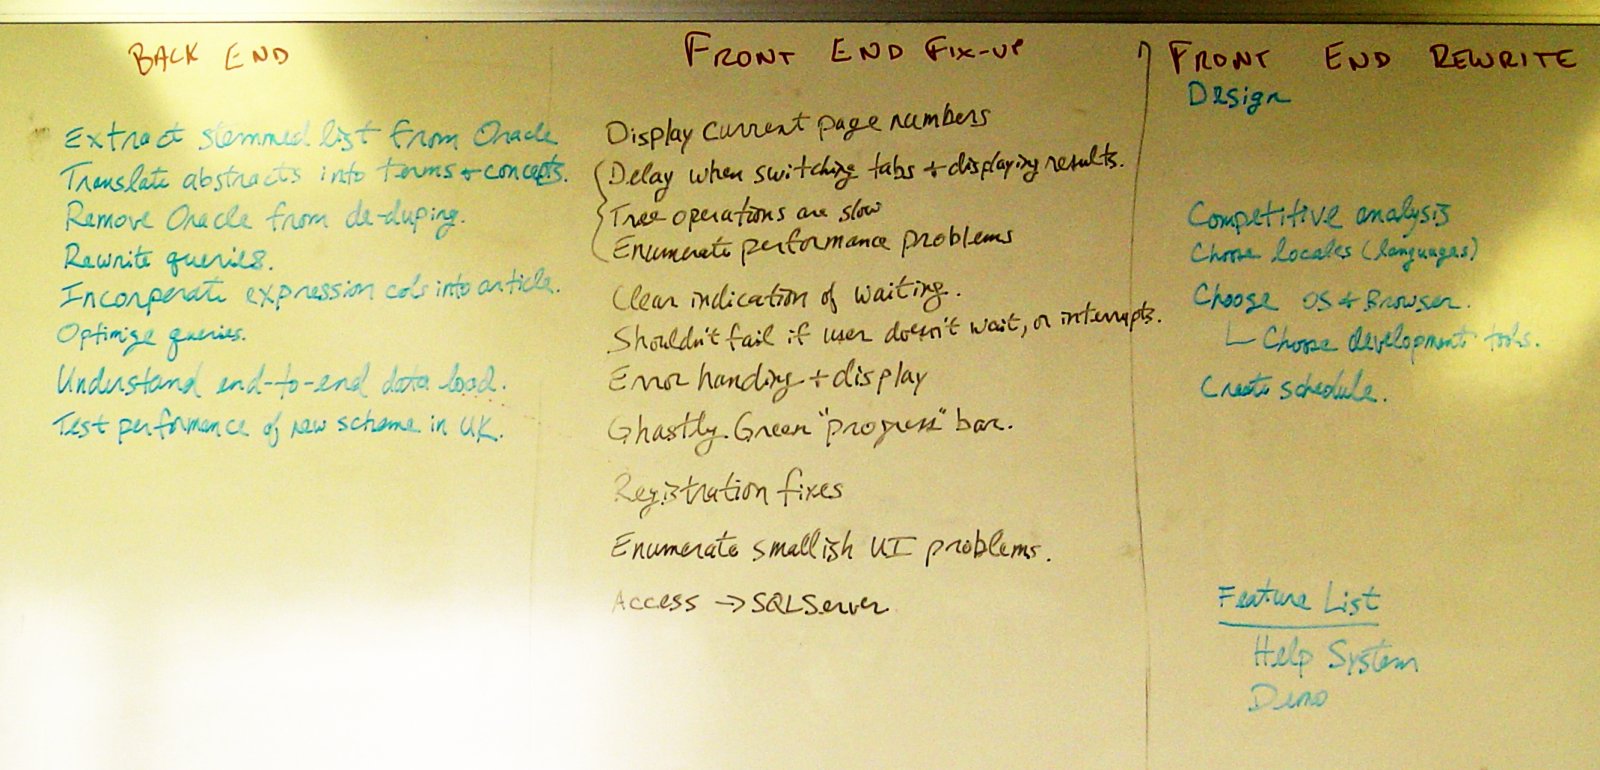 BACK END
Extract stemmed list from Oracle
Translate abstracts into terms + concepts.
Remove Oracle from de-duping.
Rewrite queries.
Incorperate expression cols into article.
Optimize queries.
Understand end-to-end data load.
Test performance of new scheme in UK.
FRONT END FIX-UP
Display current page numbers
Delay when switching tabs + displaying results.
Tree operations are slow
Enumerate performance problems
Clear indication of waiting.
Shouldn't fail if user doesn't wait, or interrupts.
Error handing + display
Ghastly Green "progress" bar.
Registration fixes
Enumerate smallish UI problems.
Access → SQLServer
FRONT END REWRITE
Design
Competitive analysis
Choose locales (languages)
Choose OS + Browser.
Choose development tools.
Create schedule.
Feature List
Help System
Demo